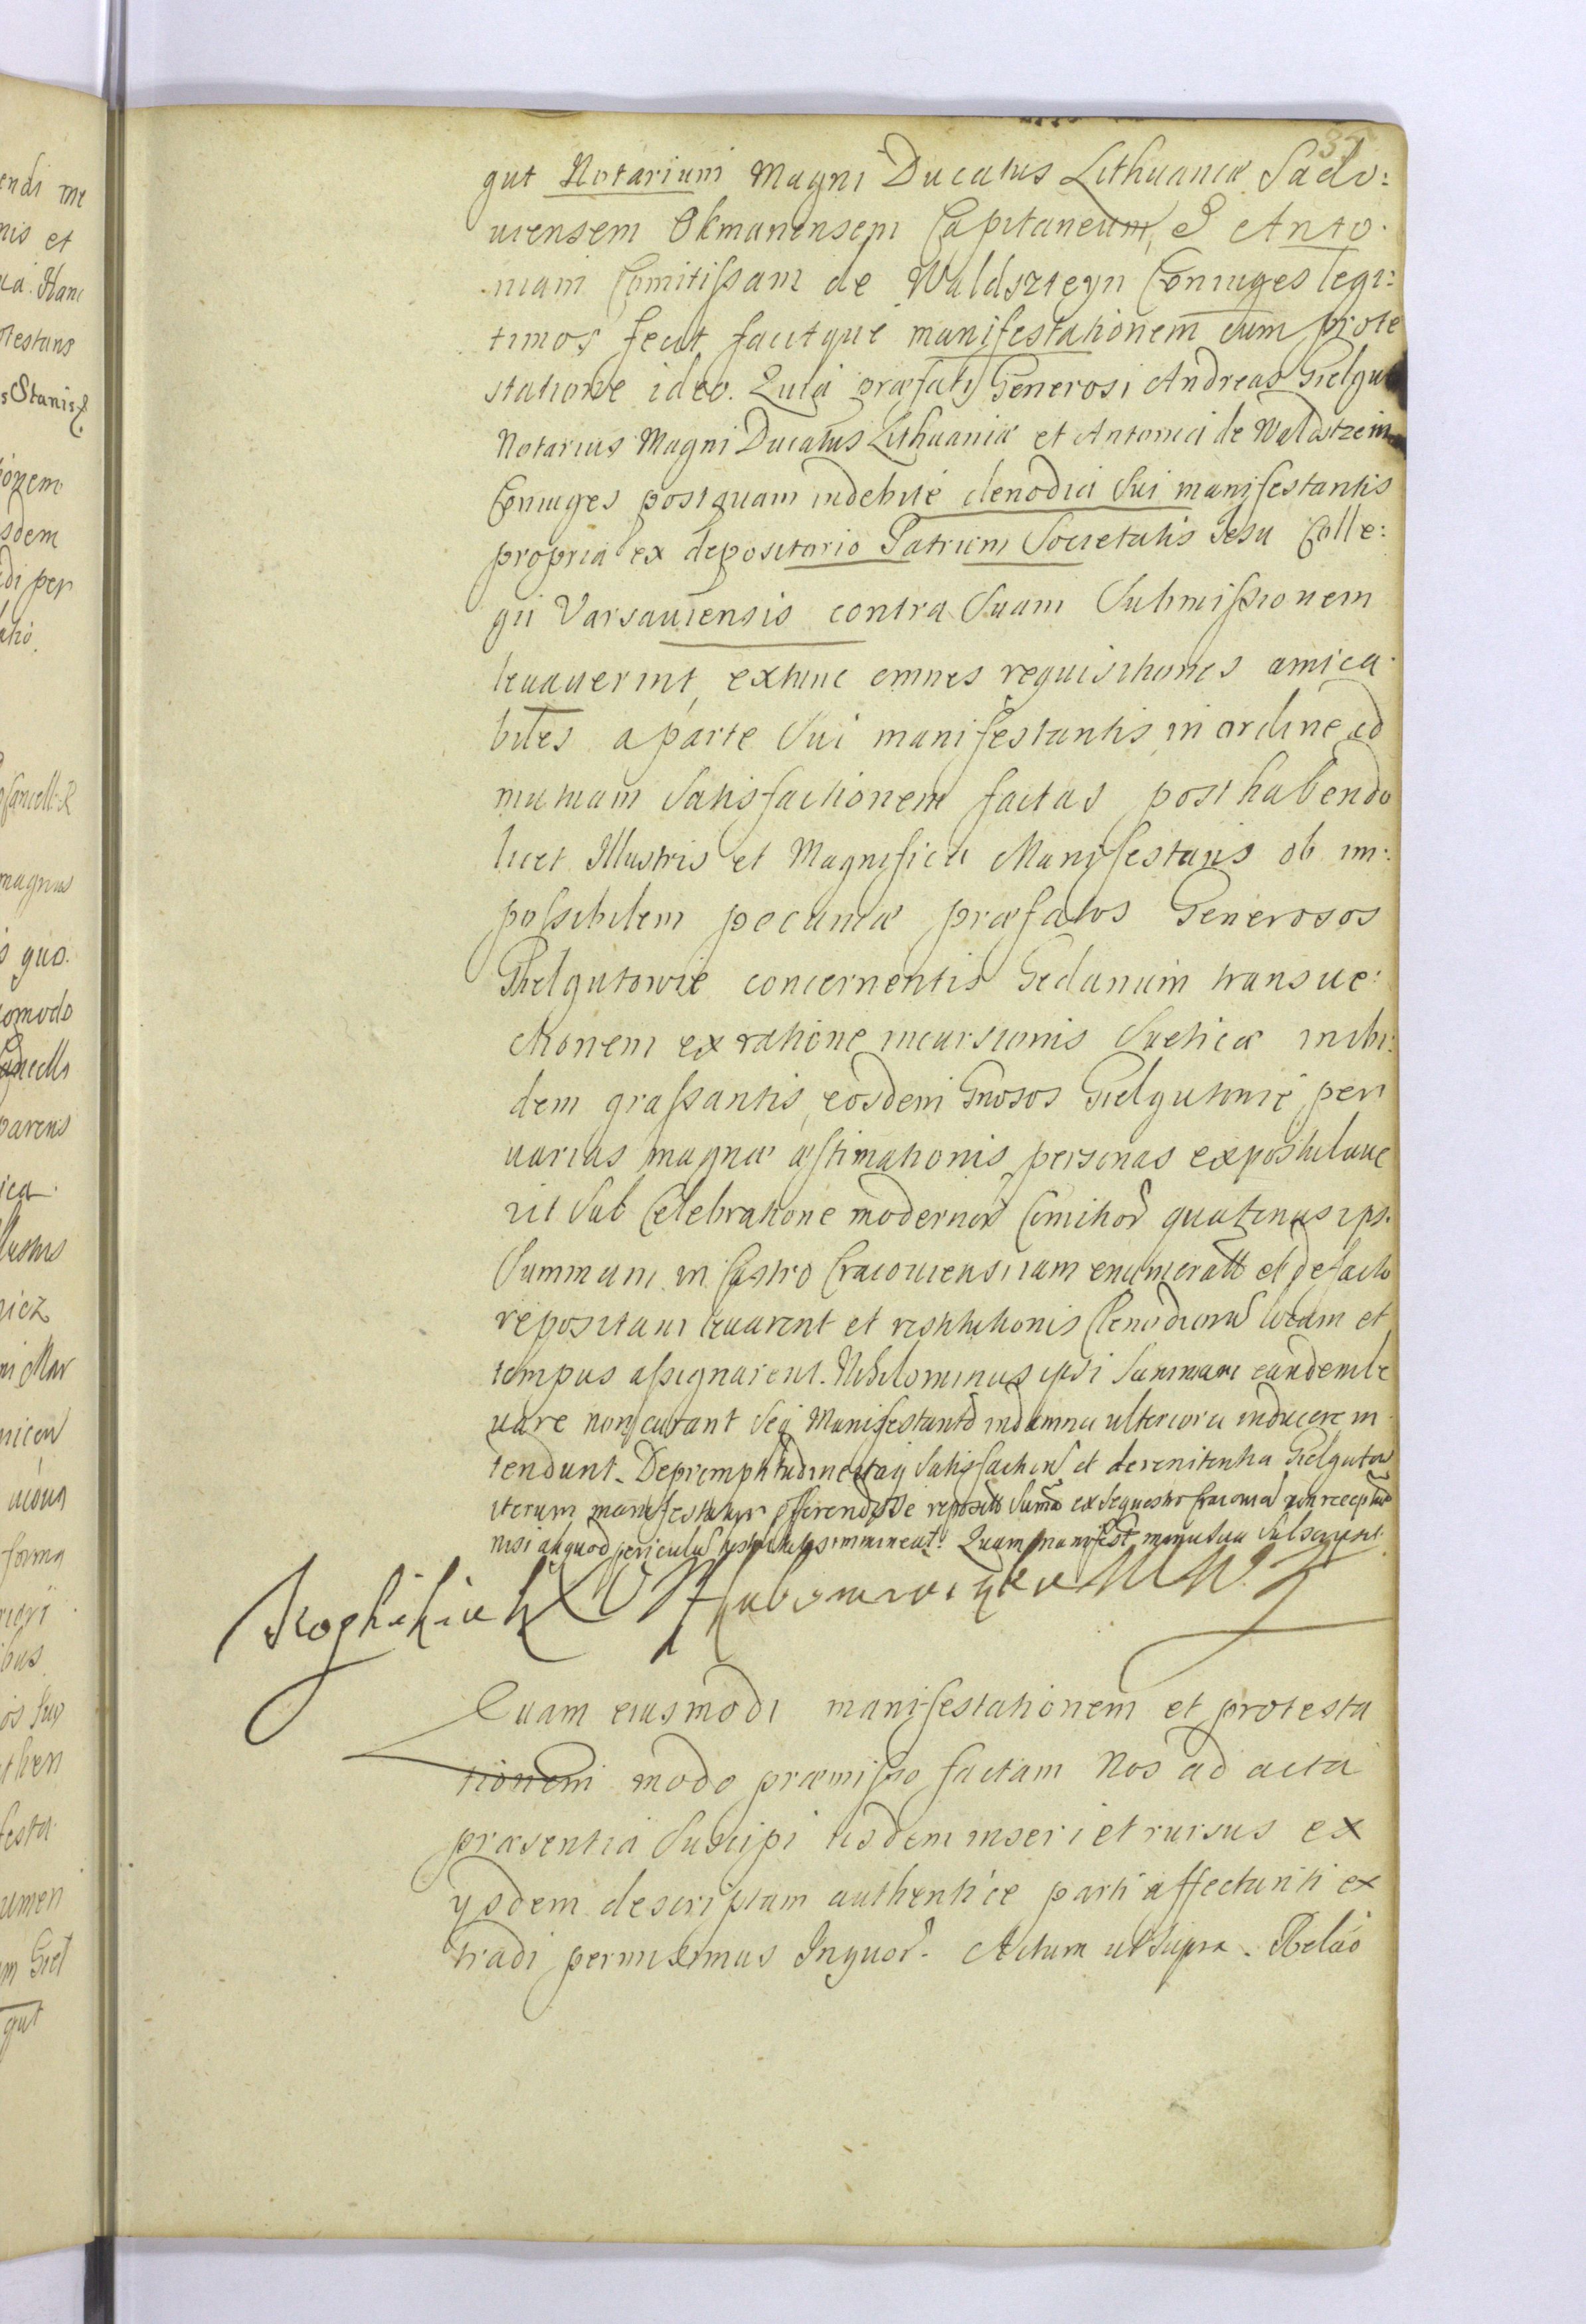 35
gut Notarium Magni Ducatus Lithuaniæ Sado:
uiensem Okmanensem Capitaneum, & Anto.
niam Comitissam de Waldszteyn Coniuges legi:
timos fecit facitque manifestationem cum prote
statione ideo. Quia præfati Generosi Andreas Gielgut
Notarius Magni Ducatus Lithuaniæ et Antonia de Waldstzein
Coniuges postquam indebite clenodia sui manifestantis
propria ex depositorio Patrum Societatis Jesu Colle:
gii Varsauiensis contra suam submissionem
leuauerint, extunc omnes requisitiones amica
biles a parte sui manifestantis in ordine ad
mutuam satisfactionem factas posthabendo
licet Illustris et Magnifica Manifestans ob im:
possibilem pecuniæ præfatos Generosos
Gielgutowie concernentis Gedanum transue:
ctionem ex ratione incursionis Sueticæ inibi:
dem grassantis, eosdem Gnosos Gielgutowie per
uarias magnæ æstimationis personas expostulaue
rit sub Celebratione modernor Comitior quatenus ips.
Summam in Castro Cracouiensi iam enumeratt et de facto
repositam leuarent et restitutionis Clenodiorum locum et
tempus assignarent. Nihilominus ipsi summam eandem le
uare non curant seq Manifestantē in damna ulteriora inducere in
tendunt. De promptitudine itaq satisfaction et de renitentia Gielgutow
iterum manifestatur offerendo se reposit summā ex sequestro Cracouien non recepturā
nisi aliquod periculū immineat. Quam manifest manu sua subscripsit.
Quam eiusmodi manifestationem et protesta
tionem modo præmisso factam Nos ad acta
præsentia suscipi iisdem inseri et rursus ex
ysdem descriptam authentice parti affectanti ex
tradi permisimus Inquor. Actum ut supra. Relāo